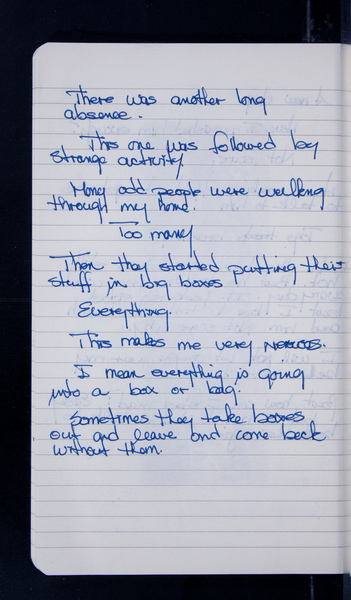 There was another long
absence.
This one was followed by
strange activity
Many odd people were walking
through my home.
Too many
Then they started putting their
stuff in big boxes
Everything.
This makes me very nervous.
I mean everything is going
into a box or bag.
Sometimes they take boxes
out and leave and come back
without them.